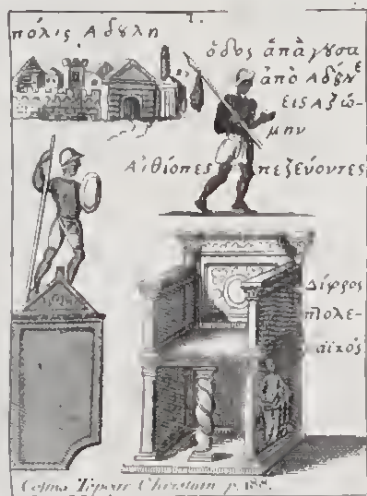 1.
πόλις Αδȣλη
ὁδος ἀπάγȣσα
ἀπὸ Αδȣλε
εις Αξώ-
μην
Αἰθίοπες πεζεύοντες
Δίφρος
πτολε-
αϊκός
Cosma Topogr Christian p. 188.